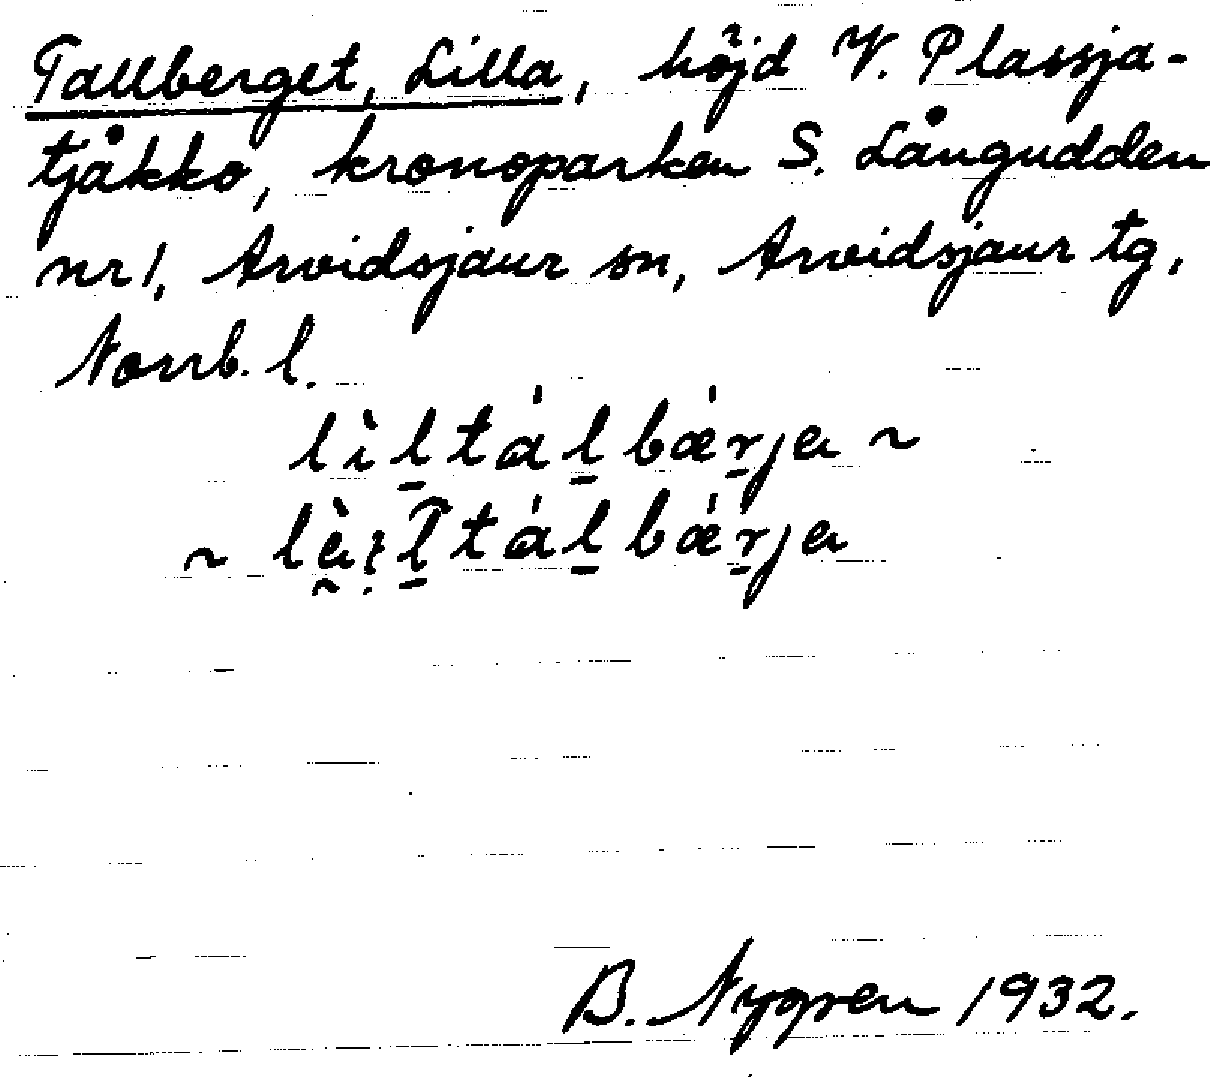 Tallberget, Lilla, höjd V. Plassja-
tjåkko, kronoparken S. Långudden
nr 1, Arvidsjaur sn, Arvidsjaur tg,
Norrb. l.
lìl̠tál̠bǽr̠ja ~
~ l̠tál̠bǽr̠ja
B. Nygren 1932.